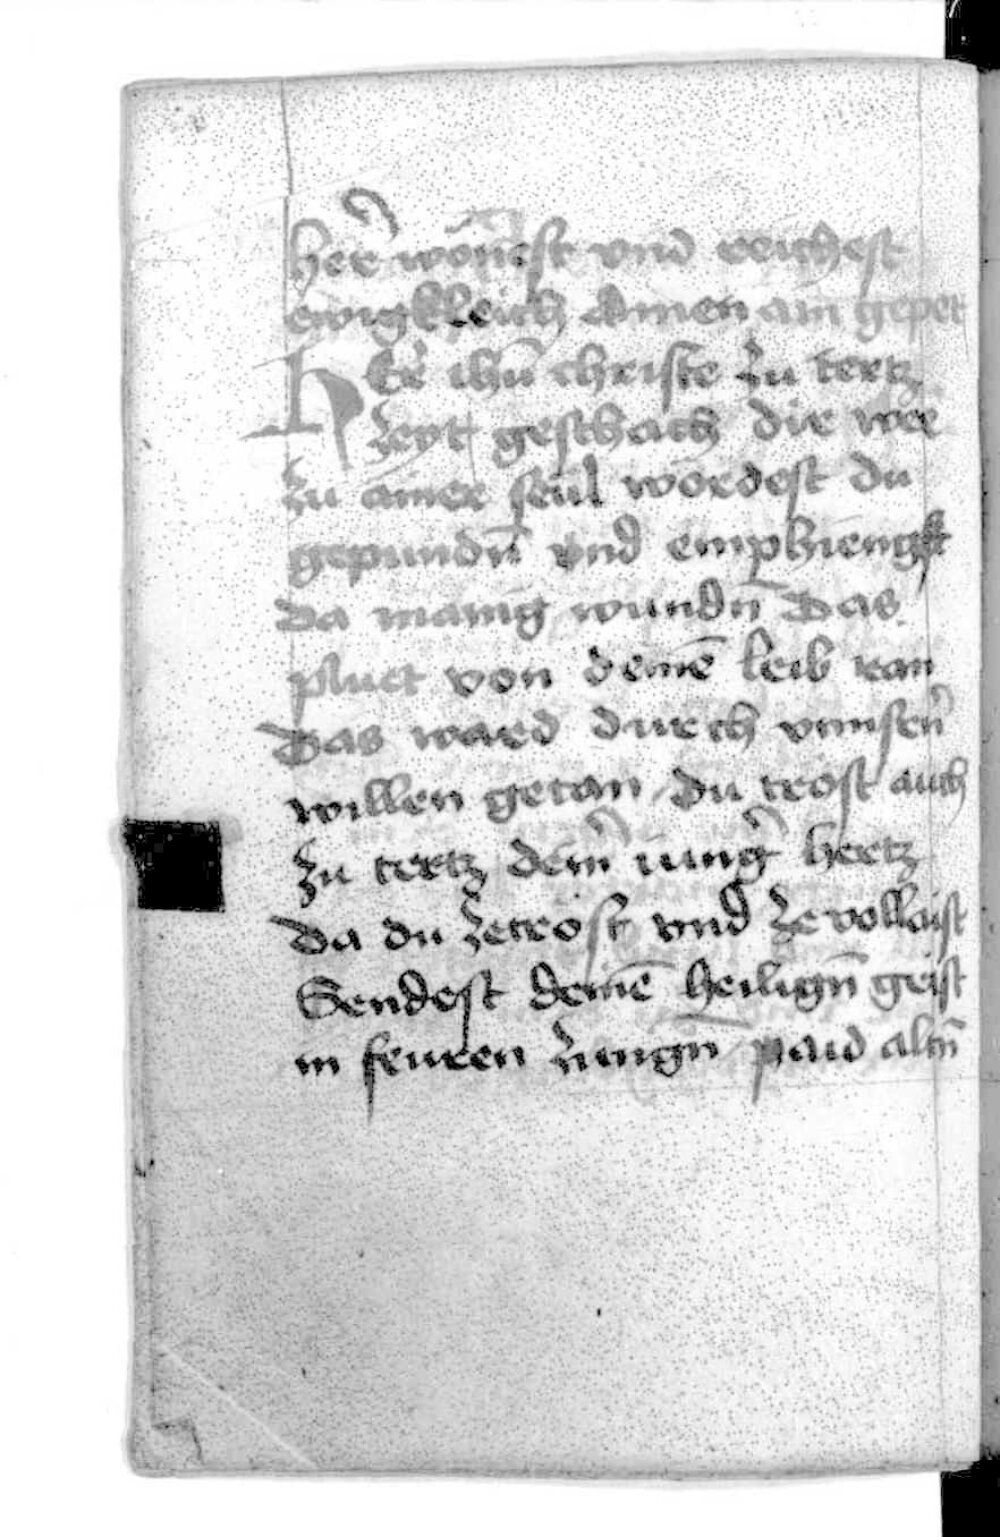 her wonest vnd reichest
ewigkleich Amen ain gepet
HEr ihū christe zu tertz
zeyt geschach dir wee
zu ainer seul wordest du
gepundn̄ vnd emphiengst
da manig wundn̄ Das
pluet von deinē leib ran
Das ward durch vnnsern̄
willen getan du trost auch
zu tertz deinr̄ iungr̄ hertz
Da du zetrost vnd ze vollaist
Sendest deinē heilign̄ geist
in feuren zungn̄ paid alln̄